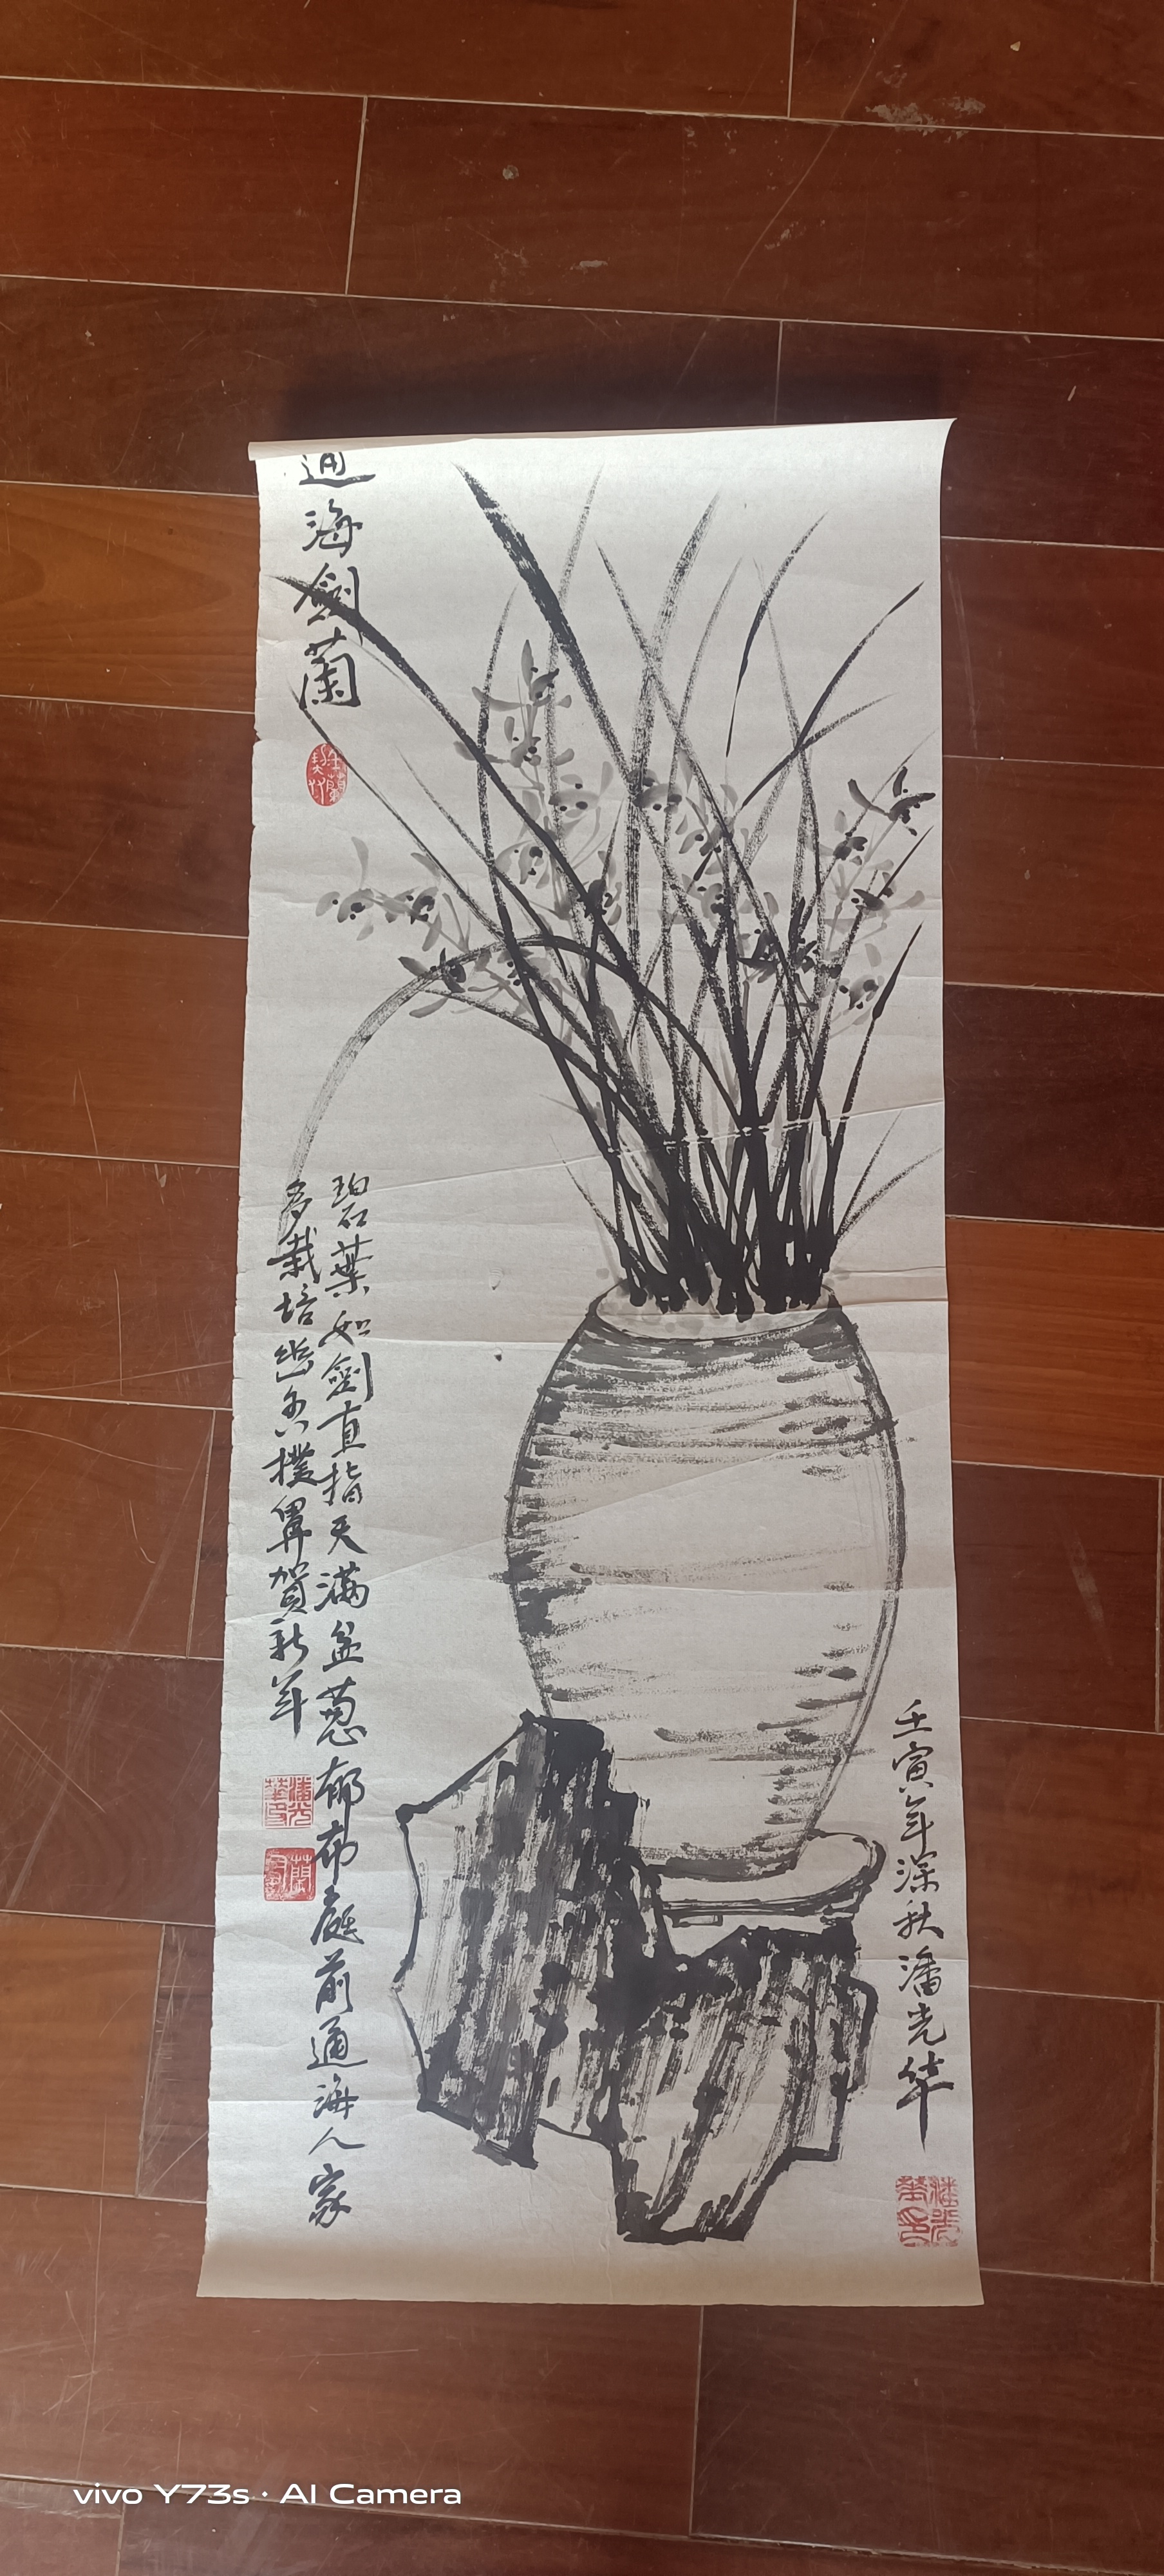 通海劍蘭
碧葉如劍直指天滿盆蔥郁布庭前通海人家
多栽培幽香撲鼻賀新年
壬寅年深秋潘光华
vivo Y73s · AI Camera